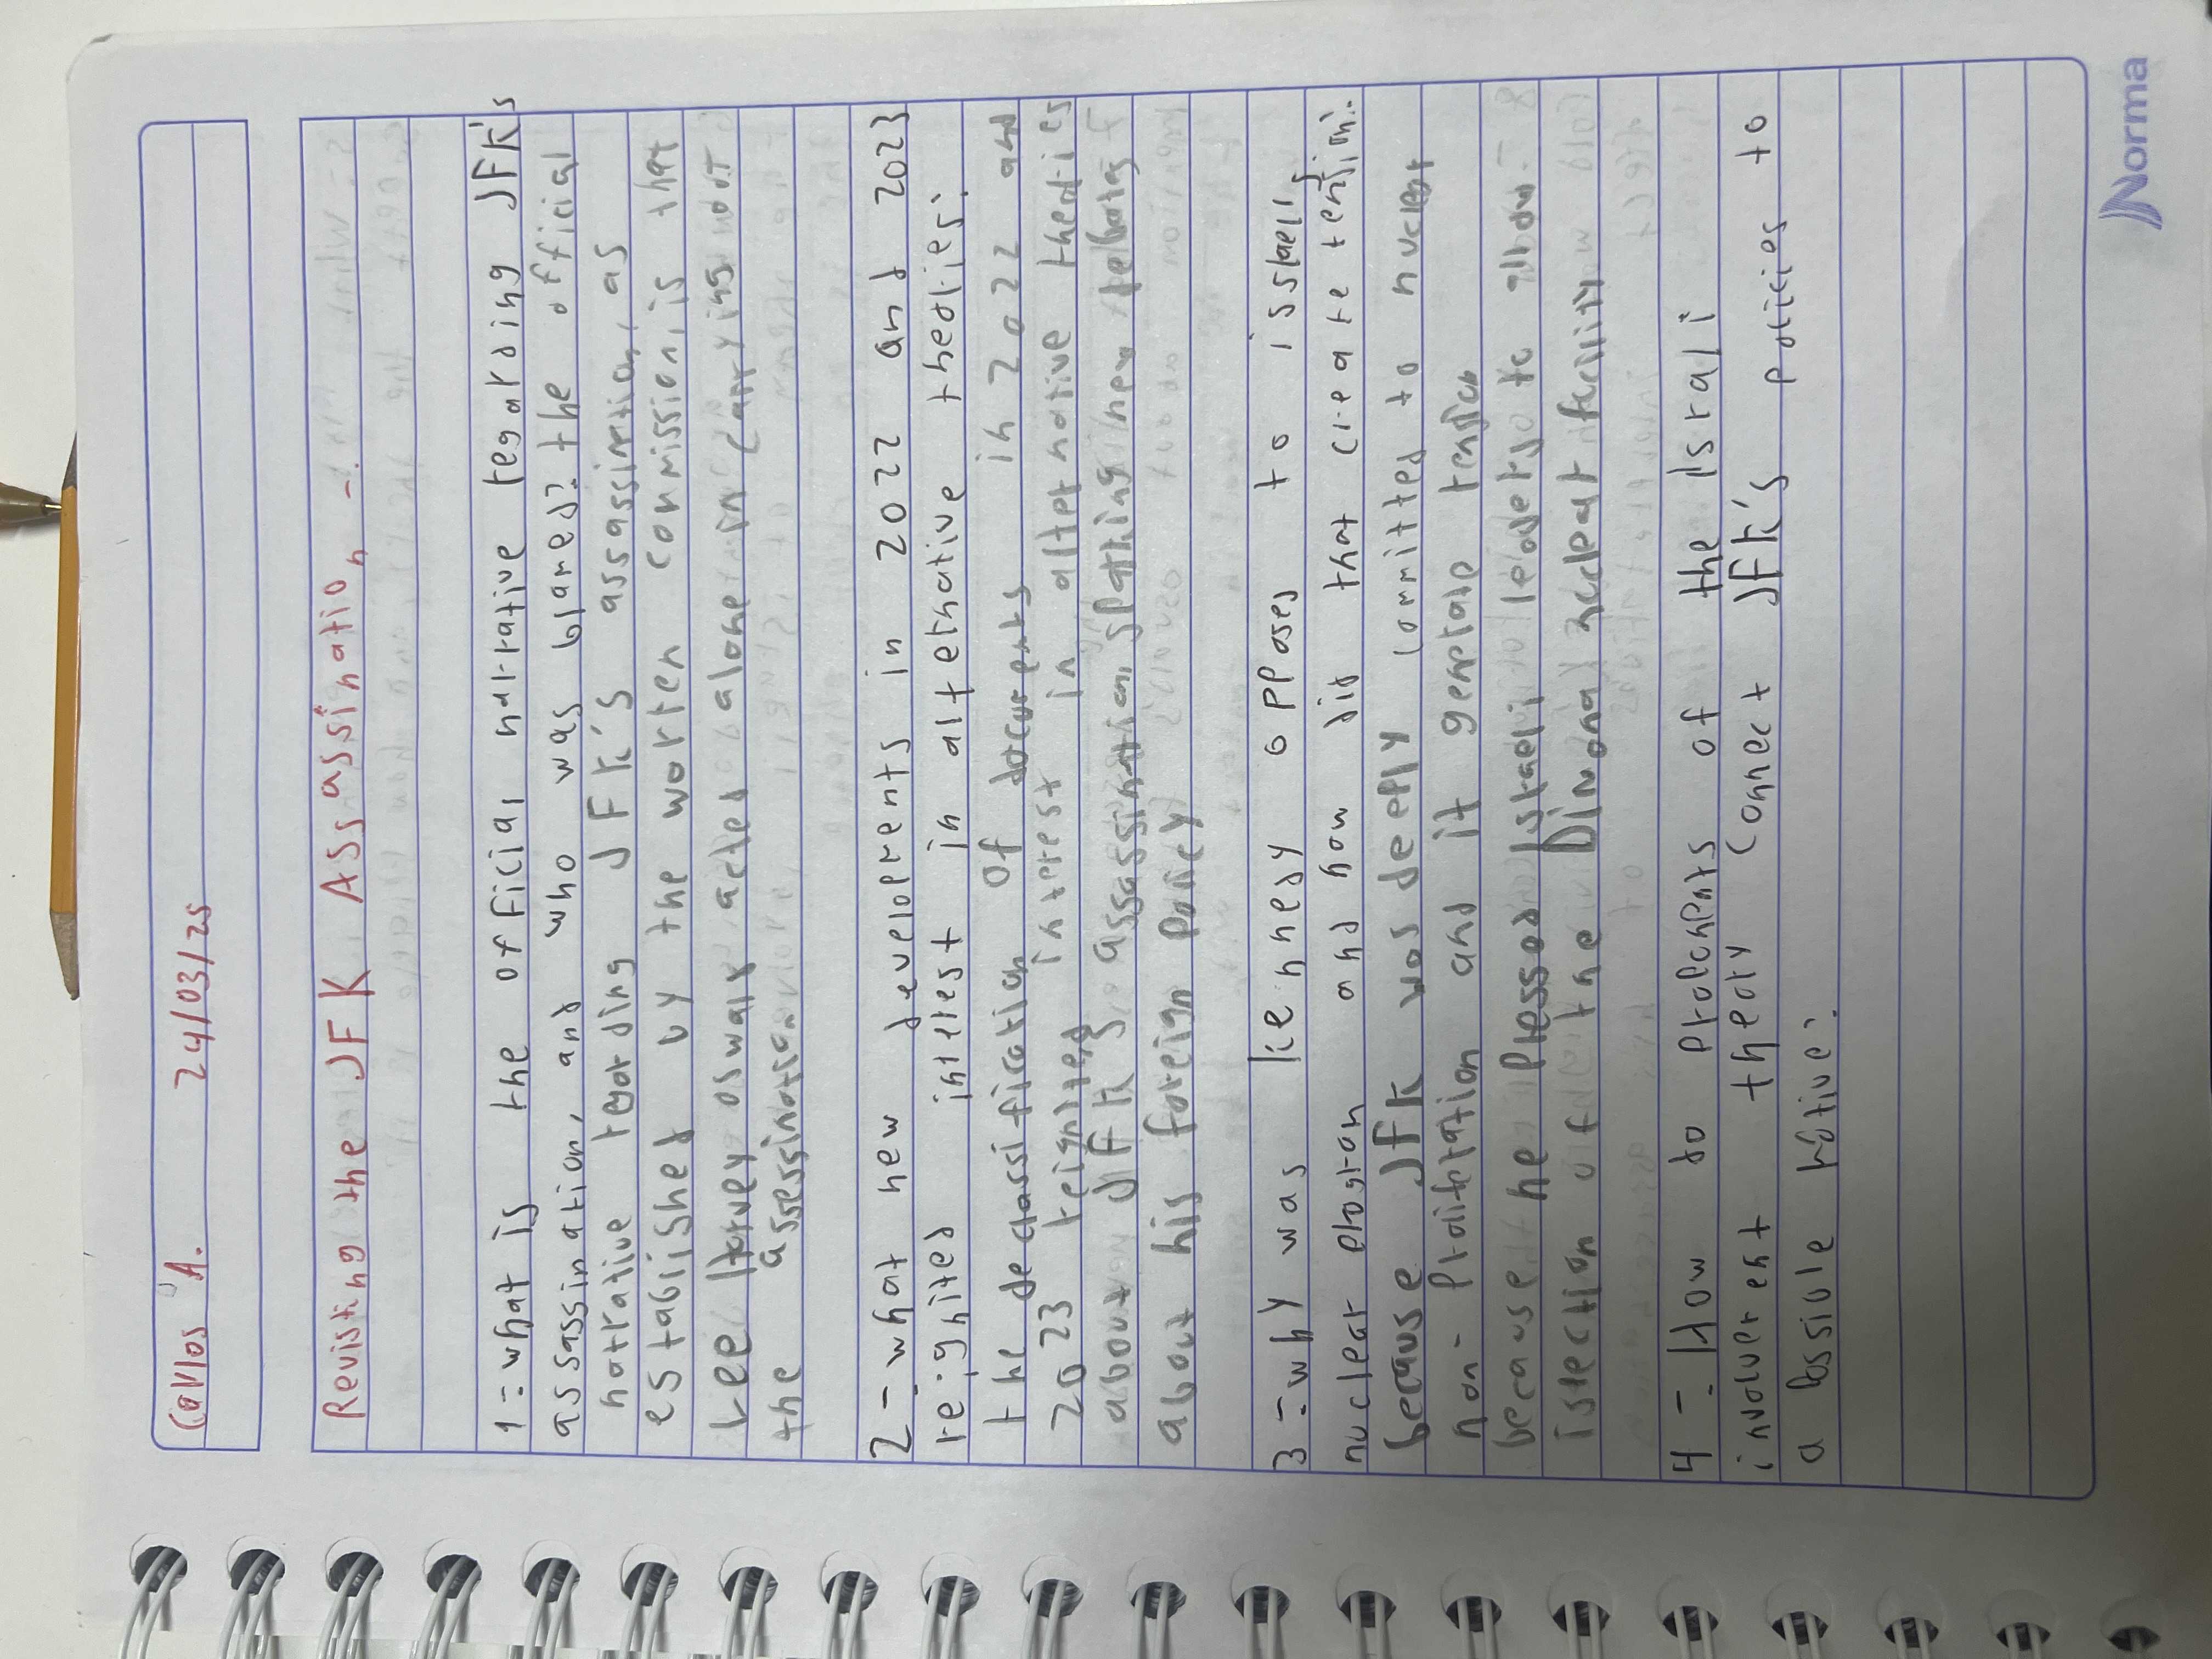 Carlos A. 24/03/25
Revisting the JFK Assassination -.
1-. what is the official narrative regarding JFK's
assassination, and who was blamed? the official
narrative regarding JFK's assassination, as
established by the worren commission, is that
Lee Harvey oswald acted alone in carrying out
the assessination.
2-. what new developments in 2022 and 2023
reignited interest in alternative theories?
the declassification of documents in 2022 and
2023 reignited interest in alternative theories
about JFK's assassination, sparking new
about his foreign policy
3-. why was kennedy opposed to issrael
nuclear program and how did that create tension?
because JFK was deeply committed to nuclear
non-proliferation and it generate tension
because he pressed Israeli leaders to allow
isfection of the Dimona nuclear facility
4-. How do proponents of the Israli
involvement theory connect JFK's policies to
a possible motive?
Norma